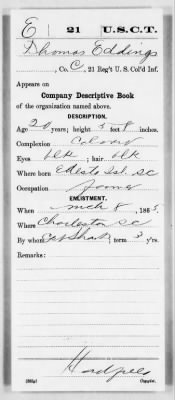 E 21 U.S.C.T.
Thomas Eddings
, Co. C, 21 Reg't U. S. Col'd Inf.
Appears on
Company Descriptive Book
of the organization named above.
DESCRIPTION.
Age 20 years; height 5 feet 8 inches.
Complexion Colored
Eyes blk ; hair blk
Where born Edisto Isl. SC
Occupation Farmer
ENLISTMENT.
When Mch 8, 1865.
Where Charleston SC
By whom ; term 3 y'rs.
Remarks:
Copyist.